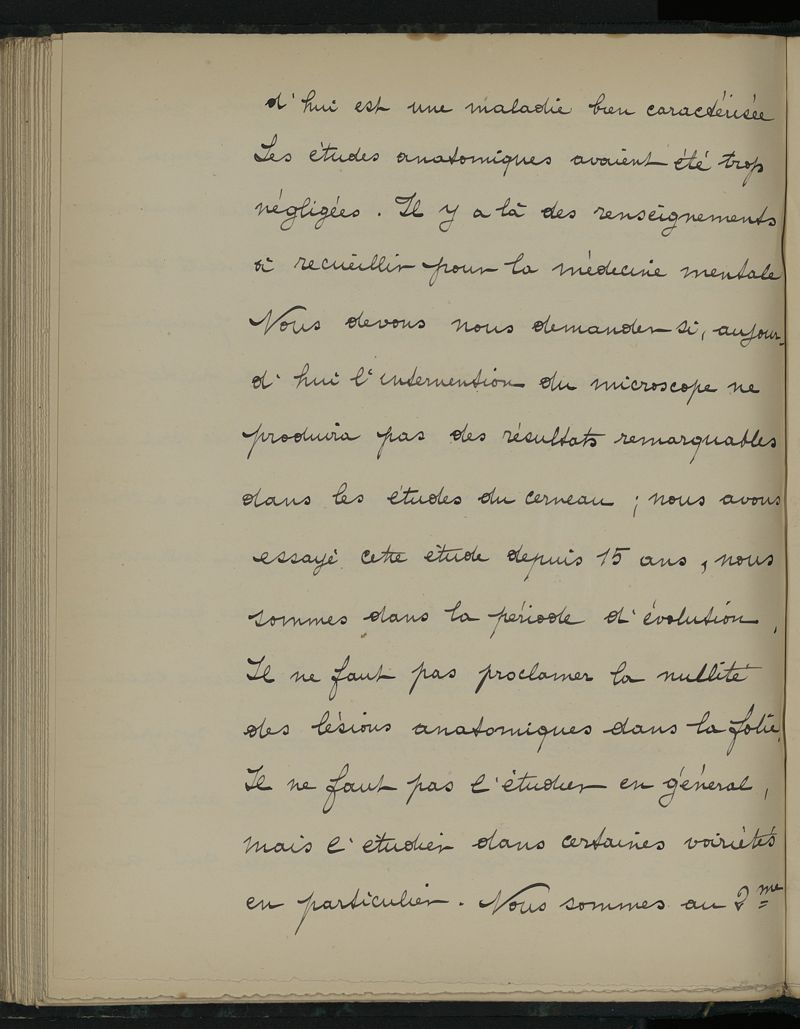 d'hui est une maladie bien caractérisée
Les études anatomiques avaient été trop
négligées. Il y a là des renseignements
à recueillir pour la médecine mentale
Nous devons nous demander si, aujour-
d'hui l'intervention du microscope ne
produira pas des résultats remarquables
dans les études du cerveau ; nous avons
essayé cette étude depuis 15 ans, nous
sommes dans la période d'évolution,
Il ne faut pas proclamer la nullité
des lésions anatomiques dans la folie.
Il ne faut pas l'étudier en général,
mais l'etudier dans certaines variétés
en particulier. Nous sommes au 2me